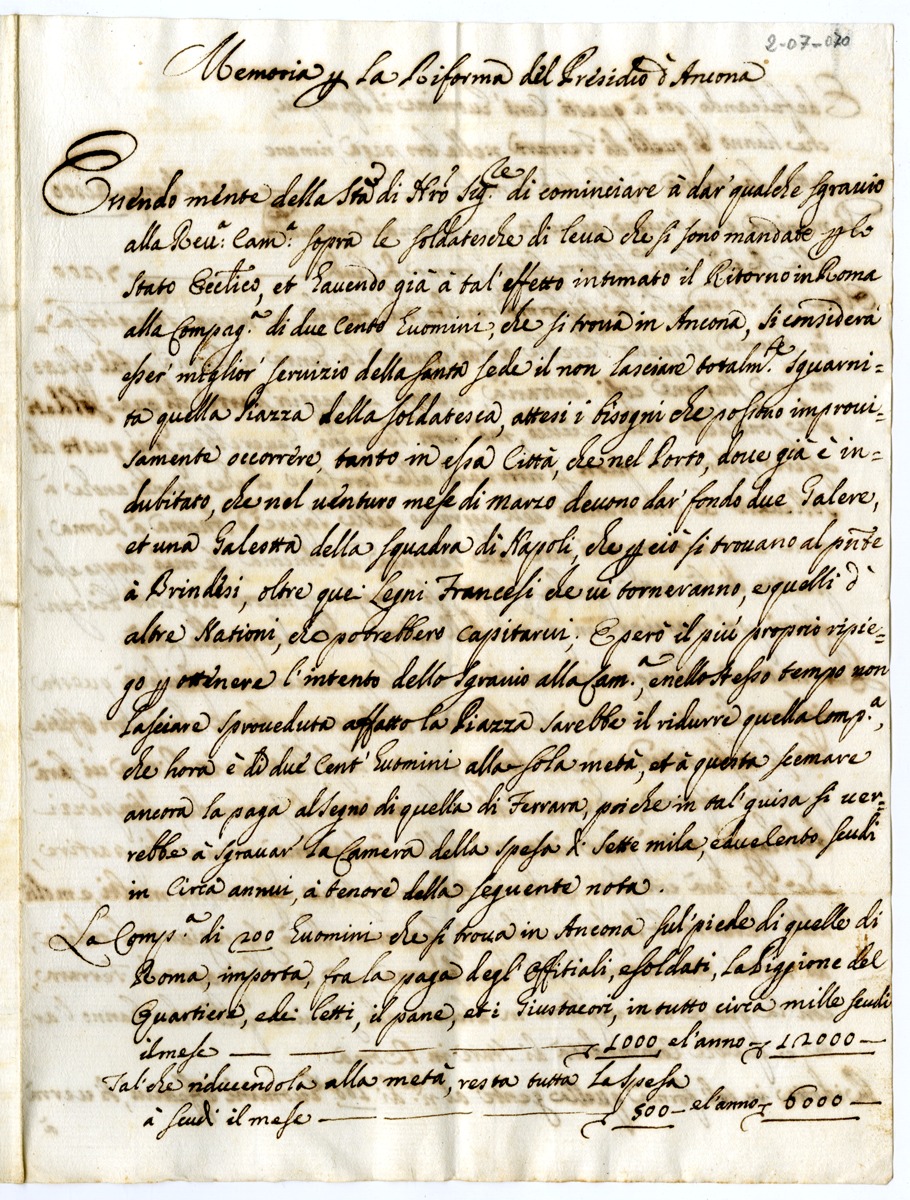 2-07-020
Memoria p la Riforma del Presidio d'Ancona
Essendo mente della Stà di Nro Sigre di cominciare à dar' qualche sgravio
alla Revà: Camà: sopra le soldatesche di leva che si sono mandate p lo
Stato Eccl̃ico, et havendo già à tal' effetto intimato il Ritorno in Roma
alla Compagà: di due Cento huomini, che si trova in Ancona, si considera
esser' miglior' servizio della santa sede il non lasciare totalmte sguarni=
ta quella Piazza della soldatesca, attesi i bisogni che possono improvi=
samente occorrere, tanto in essa Città, che nel Porto, dove già è in=
dubitato, che nel venturo mese di Marzo devono dar' fondo due Galere,
et una Galeotta della squadra di Napoli, che p ciò si trovano al pñte
à Brindisi, oltre quei Legni Francesi che vi torneranno, e quelli d'
altre Nationi, che potrebbero capitarvi; E però il più proprio ripie=
go p ottenere l'intento dello sgravio alla Camà:, e nello stesso tempo non
lasciare sproveduta affatto la Piazza sarebbe il ridurre quella Compà:,
che hora è di due Cent' huomini alla sola metà, et à questa scemare
ancora la paga al segno di quella di Ferrara, poiche in tal' guisa si ver=
rebbe à sgravar' la Camera della spesa di sette mila, e duecento scudi
in Circa annui, à tenore della seguente nota.
La Compà: di 200 huomini che si trova in Ancona sul' piede di quelle di
Roma, importa, fra la paga degl' offitiali, e soldati, la Piggione del
Quartiere, e dei letti, il pane, et i Giustacori, in tutto circa mille scudi
il mese — — 1000 e l'anno 12000 —
Tal' che riducendola alla metà, resta tutta la spesa
à scudi il mese — 500 — e l'anno 6000 —